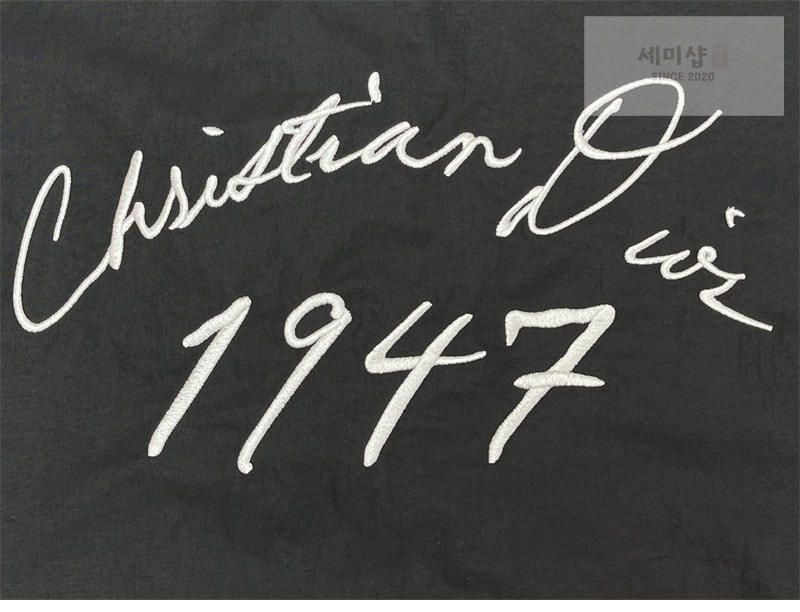 세미샵
SINCE 2020
Christian Dior
1947